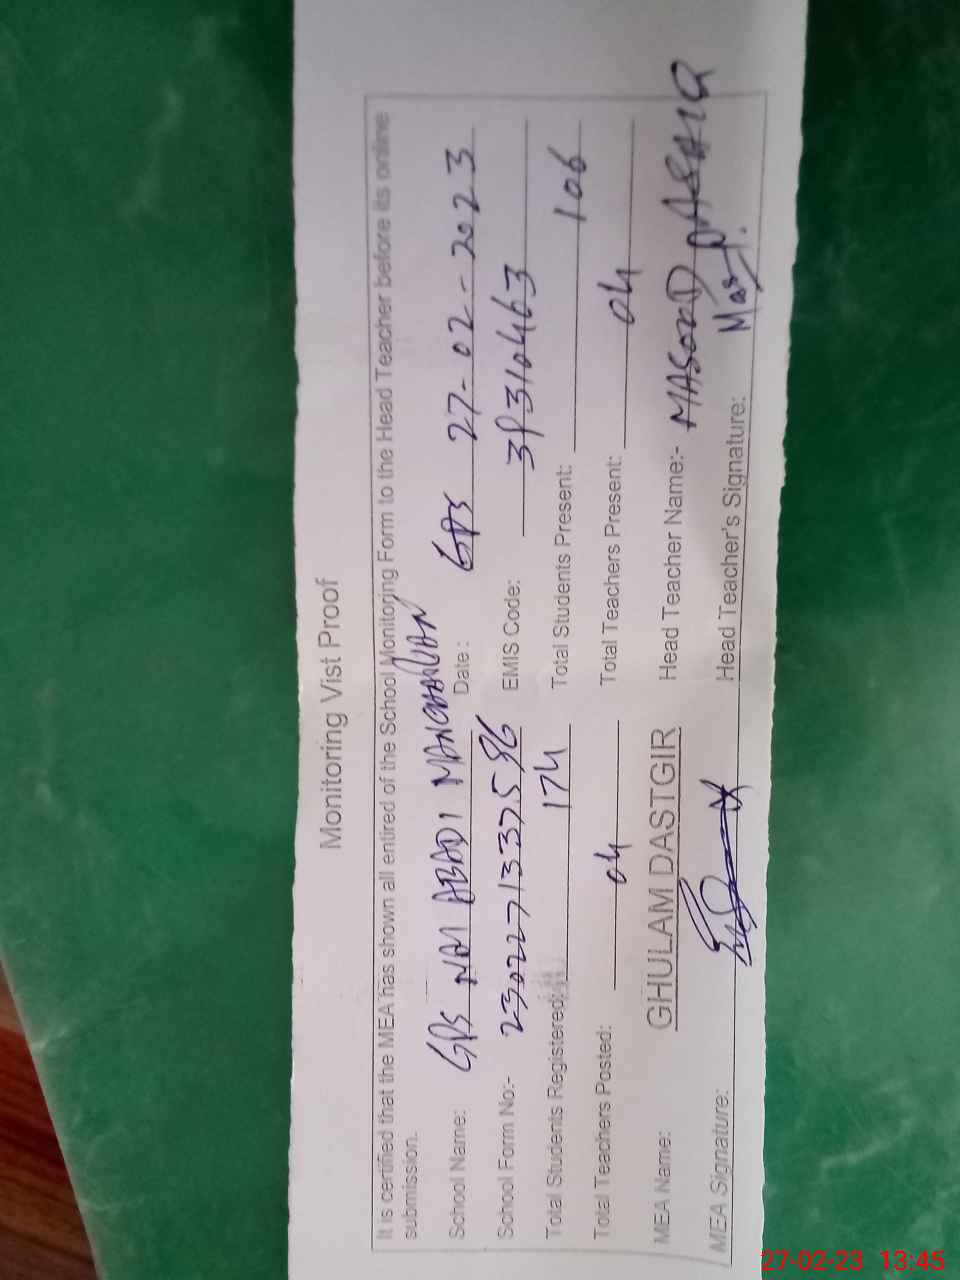 Monitoring Vist Proof
It is certified that the MEA has shown all entired of the School Monitoring Form to the Head Teacher before its online
submission.
School Name: GPS NAI ABADI Date: GPS 27-02-2023
School Form No:- EMIS Code: 
Total Students Registered: 174 Total Students Present: 106
Total Teachers Posted: 04 Total Teachers Present: 04
MEA Name: GHULAM DASTGIR Head Teacher Name:- MASOOD
MEA Signature: Head Teacher's Signature:
27-02-23 13:45